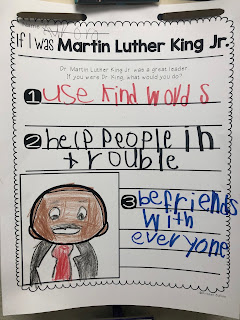 If I was Martin Luther King Jr.
Dr. Martin Luther King Jr. was a great leader.
If you were Dr. King, what would you do?
1 use kind words
2 help people in
trouble
3 be friends
with
everyone